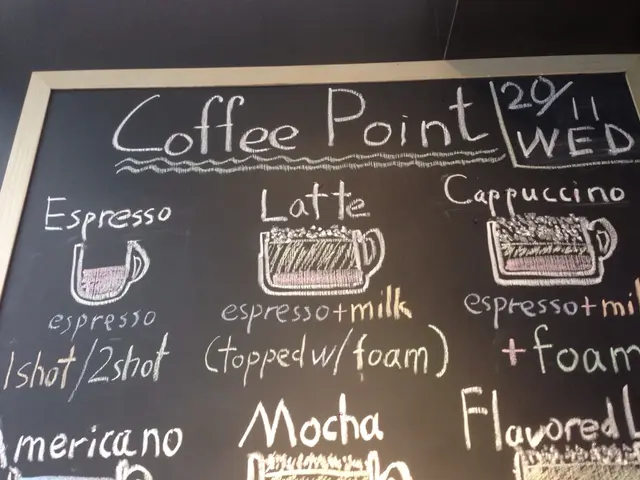 Coffee Point
29/11
WED
Espresso
espresso
1shot/2shot
Latte
espresso+milk
(topped w/ foam)
Cappuccino
espresso+mil
+foam
Americano
Mocha
Flavored L